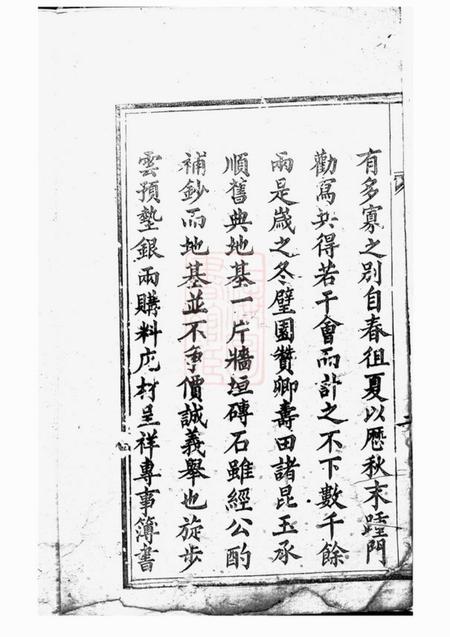 有多寡之別自春徂夏以歷秋末踵門
勸寫共得若干會而計之不下數千餘
兩是歲之冬璧園贊卿壽田諸昆玉承
順舊典地基一片牆垣磚石雖經公酌
補鈔而地基並不爭價誠義舉也旋步
雲預墊銀兩購料庀材呈祥專事簿書